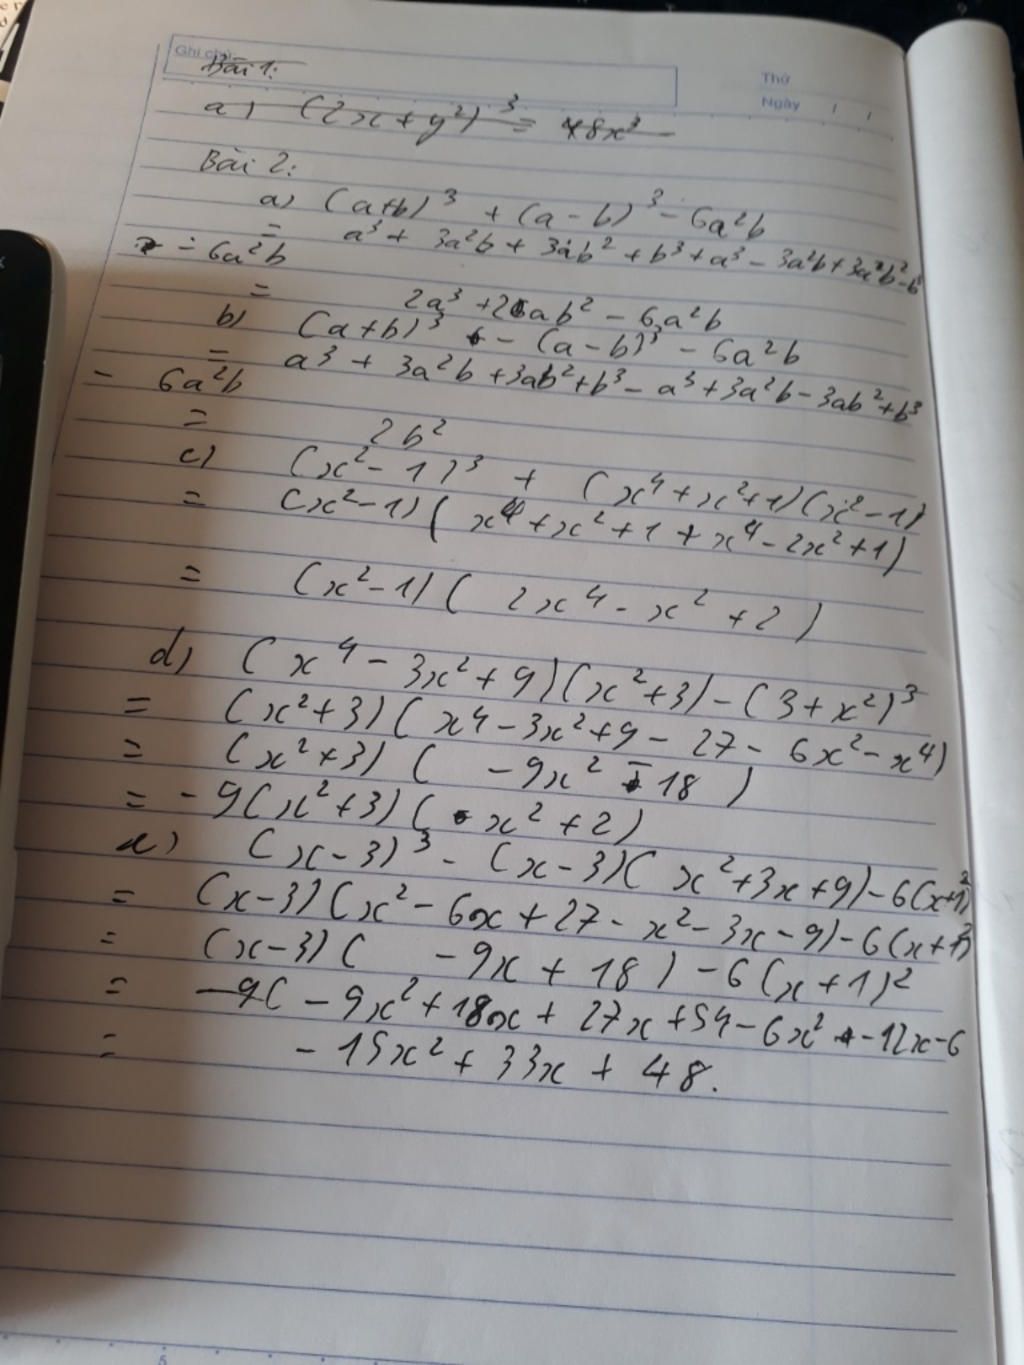 Ghi chú:
Thứ
Ngày / /
Bài 1:
a) (2x+y²)³ = 48x³
Bài 2:
a) (a+b)³ + (a-b)³ - 6a²b
= a³ + 3a²b + 3ab² + b³ + a³ - 3a²b + 3a²b² - b³
- 6a²b
= 2a³ + 6ab² - 6a²b
b) (a+b)³ - (a-b)³ - 6a²b
= a³ + 3a²b + 3ab² + b³ - a³ + 3a²b - 3ab² + b³
- 6a²b
= 2b²
c) (x²-1)³ + (x⁴+x²+1)(x²-1)
= (x²-1)(x⁴+x²+1+x⁴-2x²+1)
= (x²-1)(2x⁴-x²+2)
d) (x⁴-3x²+9)(x²+3)-(3+x²)³
= (x²+3)(x⁴-3x²+9-27-6x²-x⁴)
= (x²+3)(-9x²-18)
= -9(x²+3)(x²+2)
e) (x-3)³-(x-3)(x²+3x+9)-6(x+1)²
= (x-3)(x²-6x+27-x²-3x-9)-6(x+1)²
= (x-3)(-9x+18)-6(x+1)²
= -9x²+18x+27x+54-6x²-12x-6
= -15x²+33x+48.
5